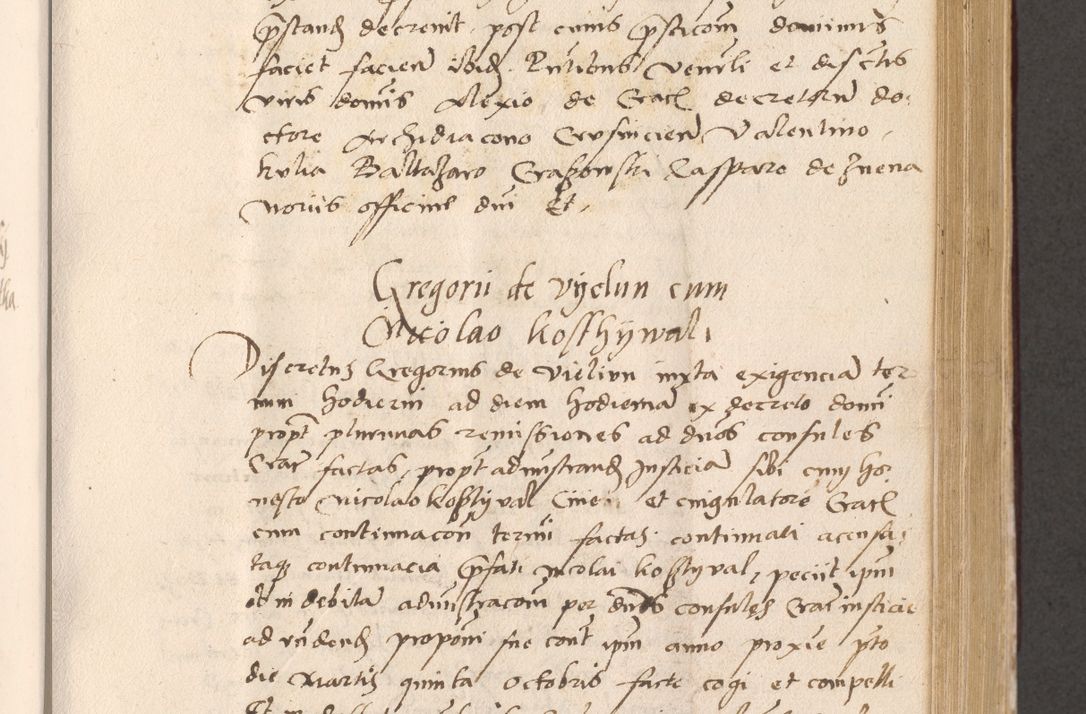 p̃standȝ decrevit, post cuius p̃sticom̃ dominus
faciet facien̄ ibidȝ. Pn̄tibus Ven̄li et discretis
viris dominis Alexio de Crac̃ decretor̃ do-
ctore Archidiacono Cursincien̄, Valentino
kulia Baltazaro Crakowski Casparo de Znena
notr̃iis officiue dn̄i Et,
Gregorii de vyelun cum
Nicolao kosthywali
Discretus Gregorius de Vielivn iuxta exigenciam ter
mini hodierni ad diem hodiernam ex decreto domini
propt̃ plurimas remissiones ad dn̄os consules
Crac̃ factas, propt̃ adm̃strandȝ Iusticiam sibi cum ho-
nesto Nicolao kostyval Civem et cingulatore Crac̃
cum continuacōn̄ termini factaȝ continuati acusa-
taqȝ contumacia p̃fati Nicolai kostyval, peciit ipm̃
ob in debitam adm̃stracom̃ per dn̄os consules Crac̃ iusticie
ad rn̄dendȝ proponi sue cont̃ ipm̃ anno proxīe pt̃o
die Martis quinta Octobris facte cogi et compelli